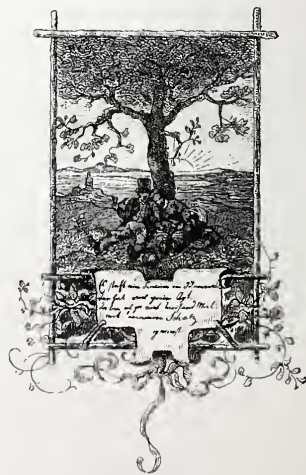 Es steht ein Baum im Odenwald
der hat viel grüne Äst
da bin ich viel tausend Mal
mit meinem Schatz
gewest